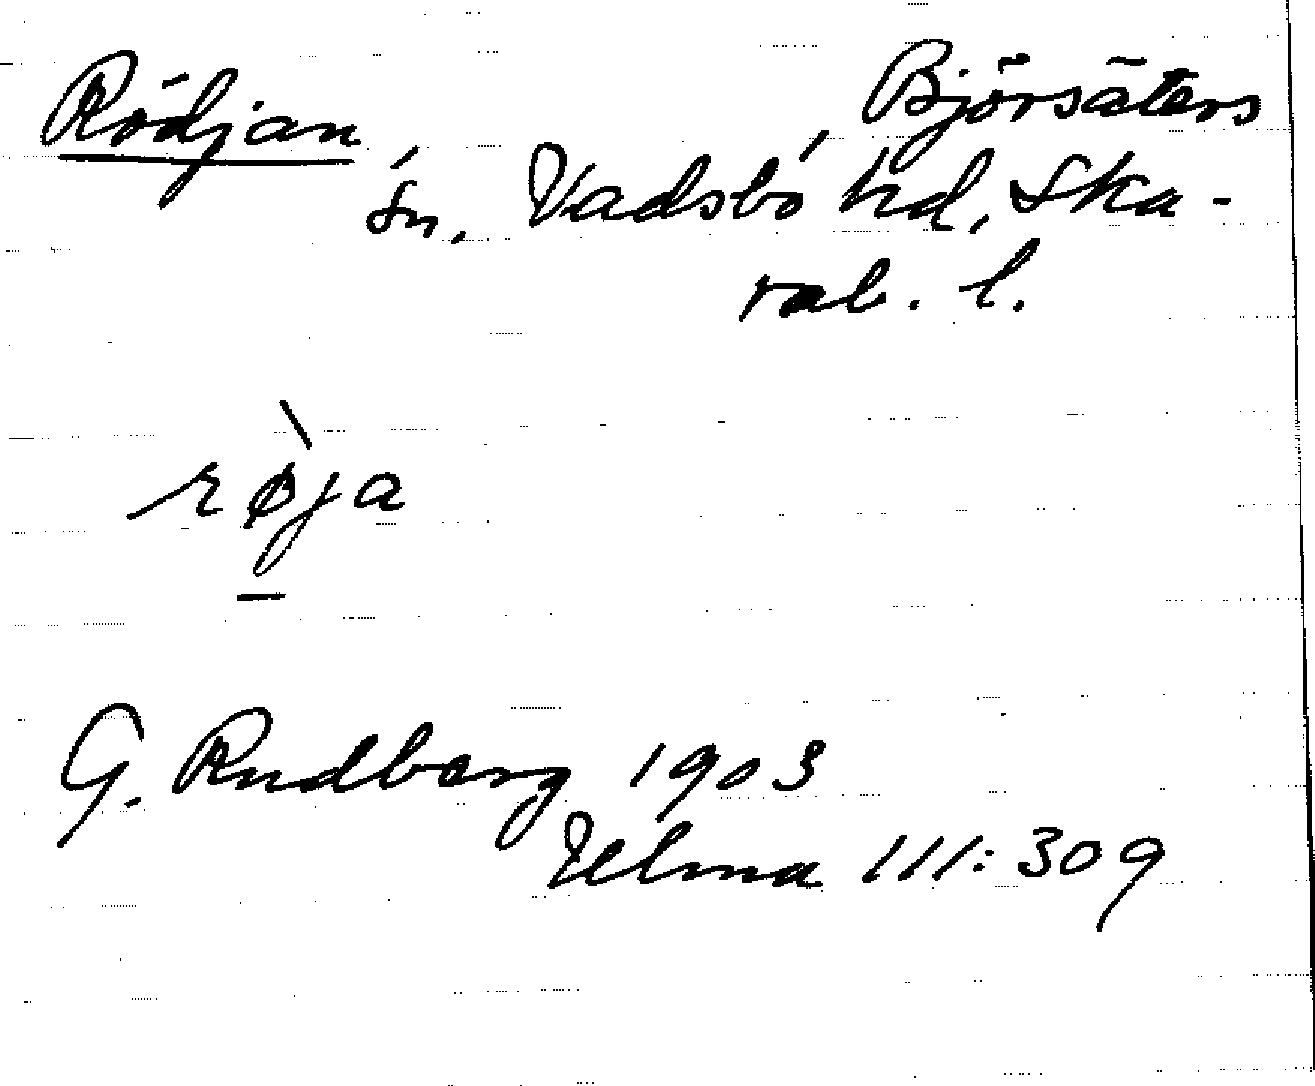 Rödjan Björsäters
sn, Vadsbo hd, Ska-
rab. l.
røja
G. Rudberg 1903
Ulma 111:309